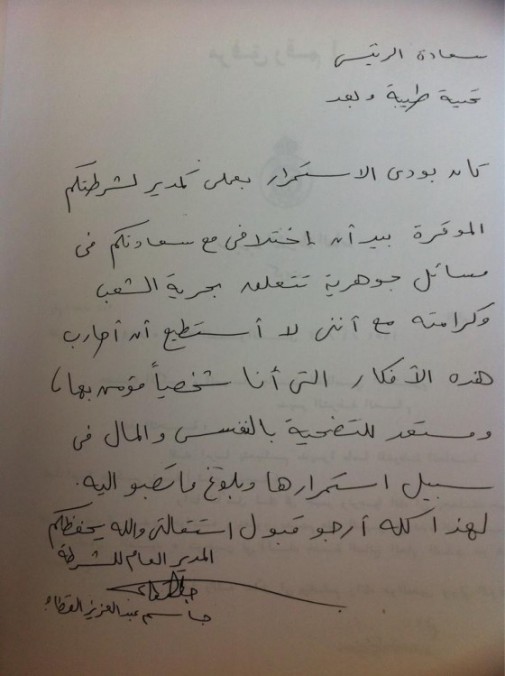 سعادة الرئيس
تحية طيبة وبعد
كان بودى الاستمرار بعملى كمدير لشرطتكم
الموقرة بيد أن إختلافى مع سعادتكم فى
مسائل جوهرية تتعلق بحرية الشعب
وكرامته مع أننى لا أستطيع أن أحارب
هذه الأفكار التى أنا شخصياً مؤمن بها،
ومستعد للتضحية بالنفس والمال فى
سبيل استمرارها وبلوغ ما تصبو اليه.
لهذا كله أرجو قبول استقالتى والله يحفظكم
المدير العام للشرطة
جاسم عبدالعزيز القطامي